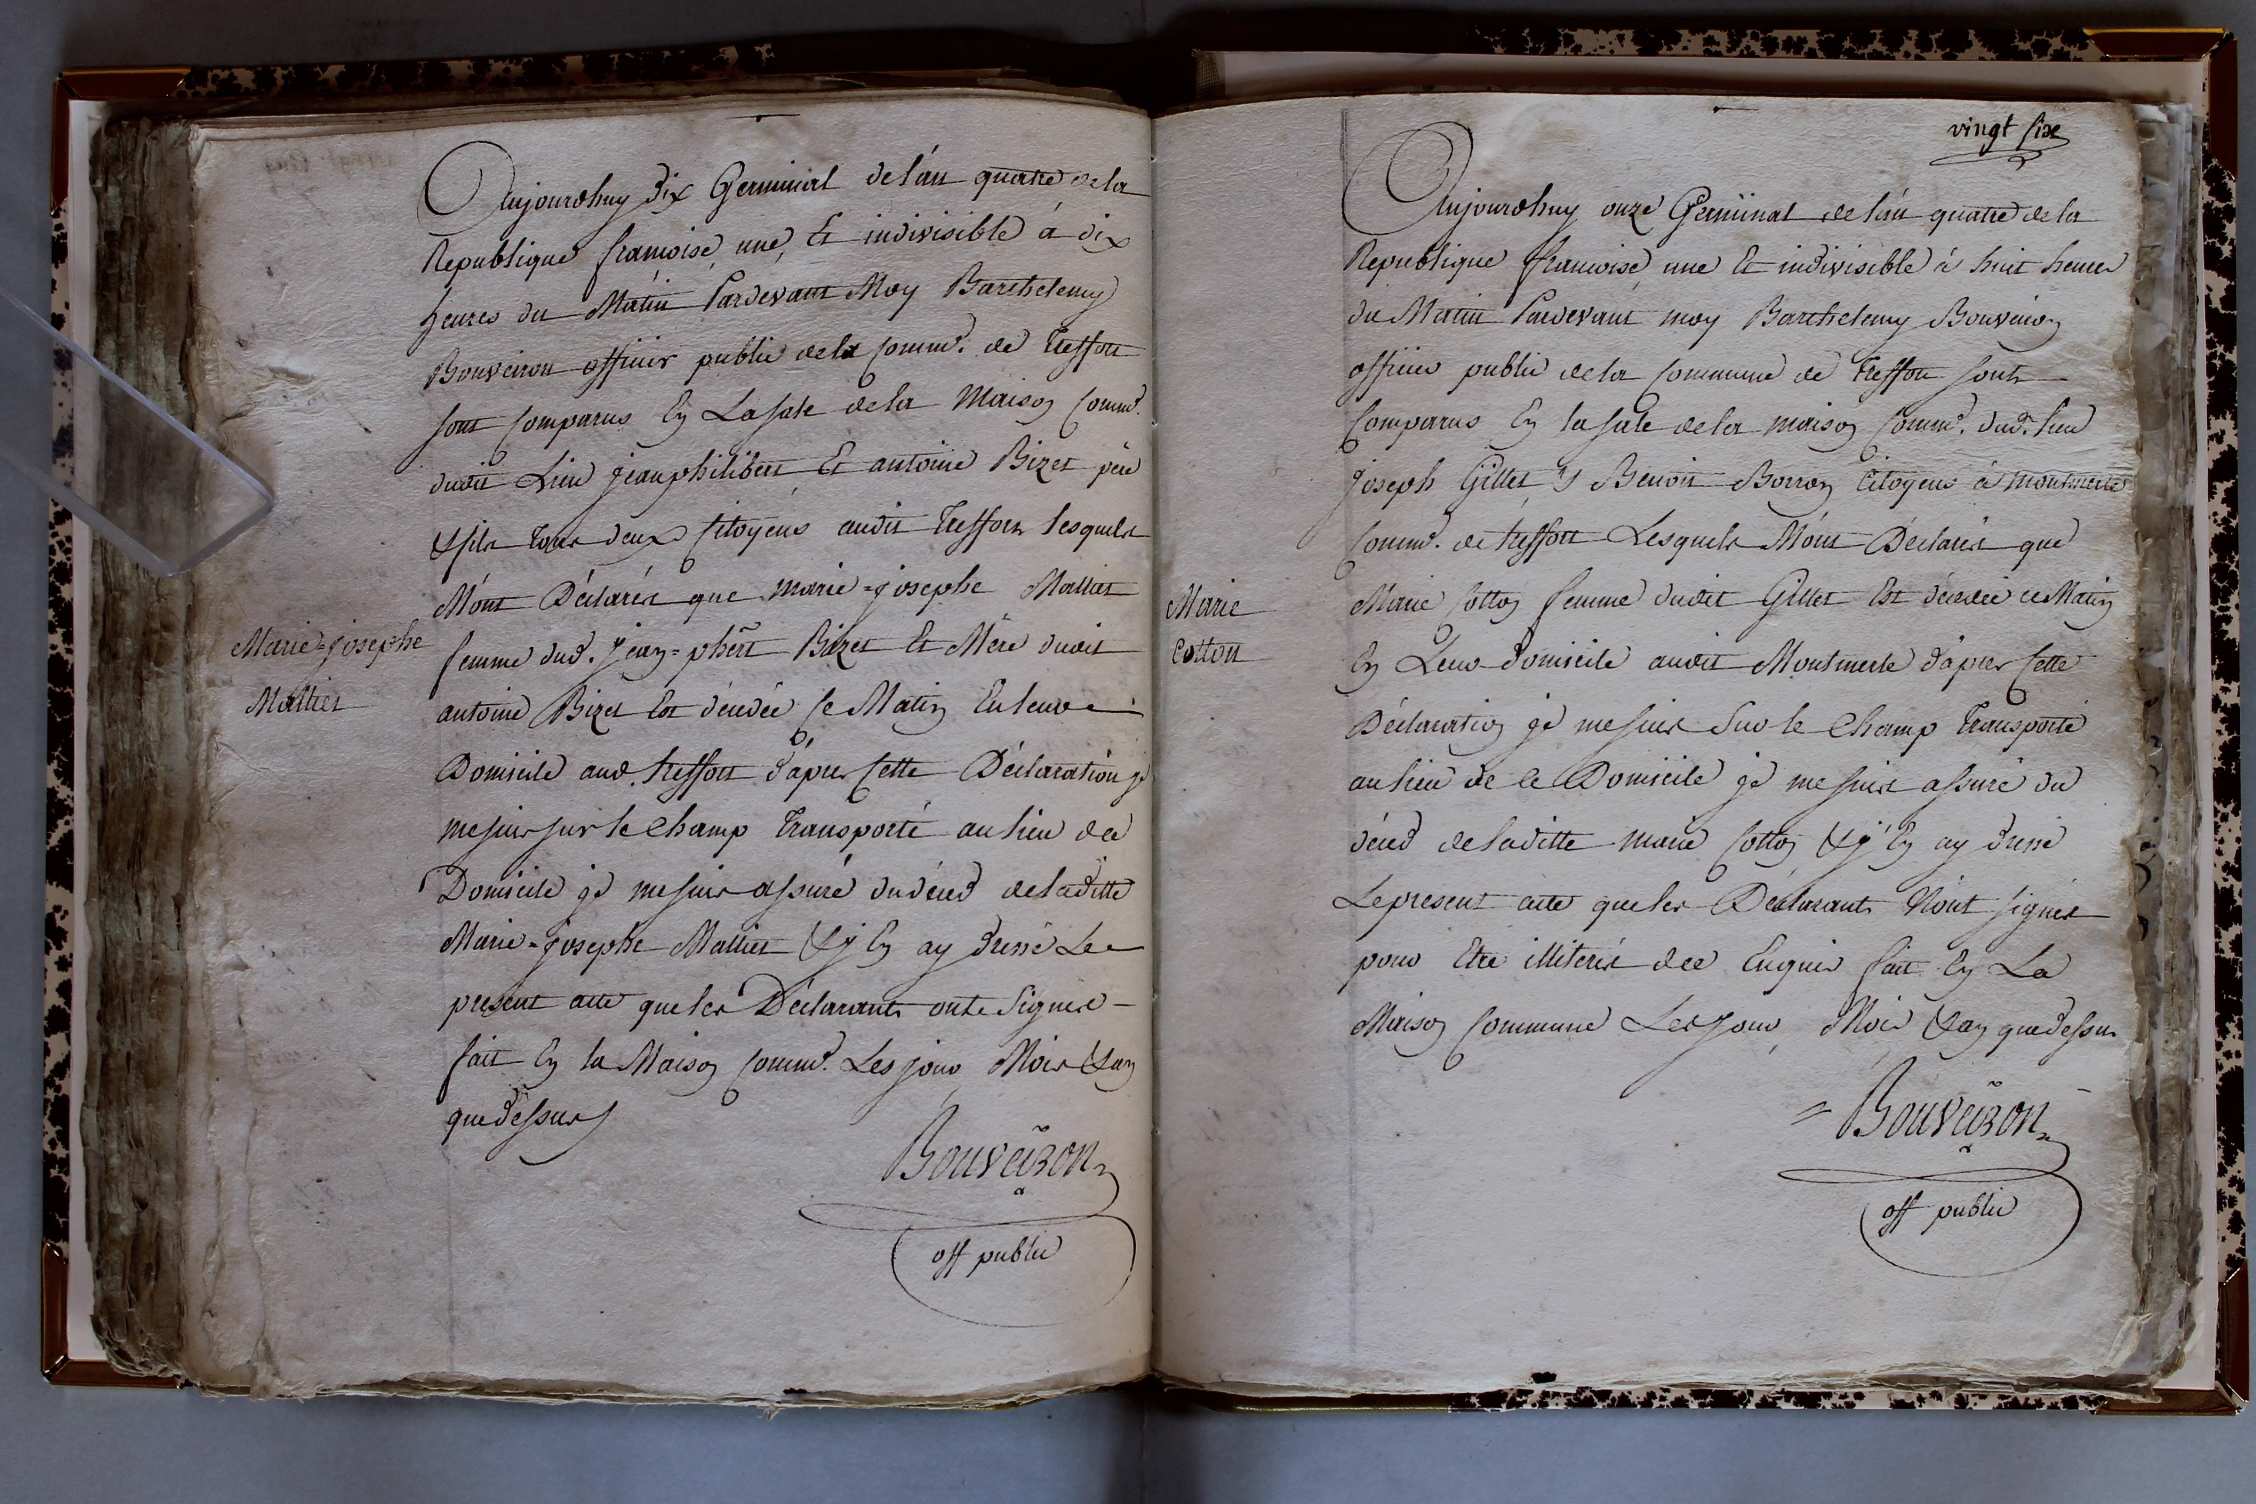 Aujourdhuy dix Germinal de l'an quatre de la
Republique francoise une, Et indivisible á dix
heures du Mátin Pardevant Moy Barthelemy
Bouveiron officier public de la Comme. de treffort
sont Comparus En La sale de la Maison Comme.
dudit Lieu jeanphilibert Et antoine Bizet père
& fils tous deux Citoyens audit treffort lesquels
M'ont Déclarés que marie=josephe Mallict
Marie=josephe
Mallict
femme dud. jean=phert Bizet Et Mère dudit
antoine Bizet Est décédée Ce Matin En leur
Domicile aud. treffort d'apres Cette Déclaration je
me suis sur le Champ transporté au lieu de ce
Domicile je me suis assuré du décéd de laditte
Marie=josephe Mallict & j'En ay dressé Le
present acte que les Déclarants ont Signés
fait En la Maison Comme. Les jour Mois & an
que dessus
Bouveiron
off public
vingt six
Aujourdhuy onze Germinal de l'an quatre de la
Republique francoise une Et indivisible à huit heures
du Matin Pardevant moy Barthelemy Bouveiron
officier public de la Commune de treffort sont
Comparus En la sale de la maison Comme. dud. lieu
joseph Gillet & Benoit Borron Citoyens à montmerle
Comme. de treffort Lesquels M'ont Déclarés que
Marie
Cotton
Marie Cotton femme dudit Gillet Est décédée ce Matin
En Leur domicile audit Montmerle d'apres Cette
Déclaration je me suis Sur le Champ transporté
au lieu de ce Domicile je me suis assuré du
décéd de laditte marie Cotton & j'En ay dressé
Le present acte que les Déclarants N'ont signés
pour Etre illiterés de ce Enquis fait En La
Maison Commune Les jour, Mois & an que dessus
Bouveiron
off public